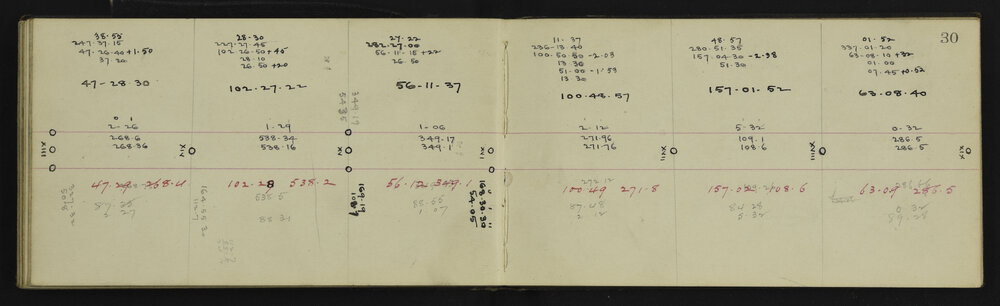 38.53
247.37.15
47.26.40+1.50
37.20
47-28 30
2-26
268.6
268.36
XIII
47.29 268.4
28.30
227.27.45
102.26.50+45
28.10
26.50+20
102.27.22
1.29
538.34
538.16
XIV
102.28 538.2
27.22
56-11-15+22
26.50
56-11-37
1-06
349.17
349.1
XV
349.17
56.12 349.1
169.19
168.30.30
54.05
XVI
11.37
236-13 40
100.50 50-2.03
13 30
51.00-1.53
13 30
100.48.57
2.12
271.96
271.76
XVII
100.49 271.8
87.48
2 12
48.57
280.51.35
157.04 30-2.38
51.30
157.01.52
5.32
109.1
108.6
XVIII
157.02 108.6
84 28
5.32
30
01.52
337.01.20
63.08.10+32
01.00
07.45+0.52
63.08.40
0.32
286.5
286.5
XIX
63.09 286.5
0.32
89.28